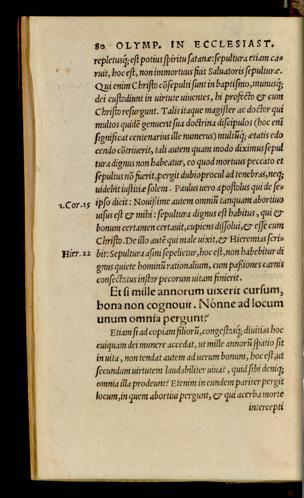 80 OLYMP. IN ECCLESIAST.
repletusq́; est potius spiritu satanæ: sepultura etiam ca-
ruit, hoc est, non immortuus fuit Saluatoris sepulturæ.
Qui enim Christo cōsepulti sunt in baptismo, munusq́;
dei custodiunt in uirtute uiuentes, hi profecto & cum
Christo resurgunt. Talis itaque magister ac doctor qui
multos quidē genuerit sua doctrina discipulos (hoc enī
significat centenarius ille numerus) multūq́; ætatis edo
cendo cōtriuerit, tali autem quam modo diximus sepul
tura dignus non habeatur, eo quod mortuus peccato et
sepultus nō fuerit, perget dubio procul ad tenebras, neq;
uidebit iustitiæ solem. Paulus uero apostolus qui de se-
1. Cor. 15 ipso dicit: Nouissime autem omniū tanquam abortiuo
uisus est & mihi: sepultura dignus est habitus, qui &
bonum certamen certauit, cupiens dissolui, & esse cum
Christo. De illo autē qui male uixit, & Hieremias scri-
Hier. 22 bit: Sepultura asini sepelietur, hoc est, non habebitur di
gnus quiete hominū rationalium, cum passiones carnis
consectatus instar pecorum uitam finierit.
Et si mille annorum uixerit cursum,
bona non cognouit. Nónne ad locum
unum omnia pergunt?
Etiam si ad copiam filiorū, congestasq́; diuitias hoc
cuiquam dei munere accedat, ut mille annorū spatio sit
in uita, non tendat autem ad uerum bonum, hoc est, ut
secundum uirtutem laudabiliter uiuat, quid sibi deniq;
omnia illa prodeunt? Etenim in eundem pariter pergit
locum, in quem abortiui pergunt, & qui acerba morte
intercepti